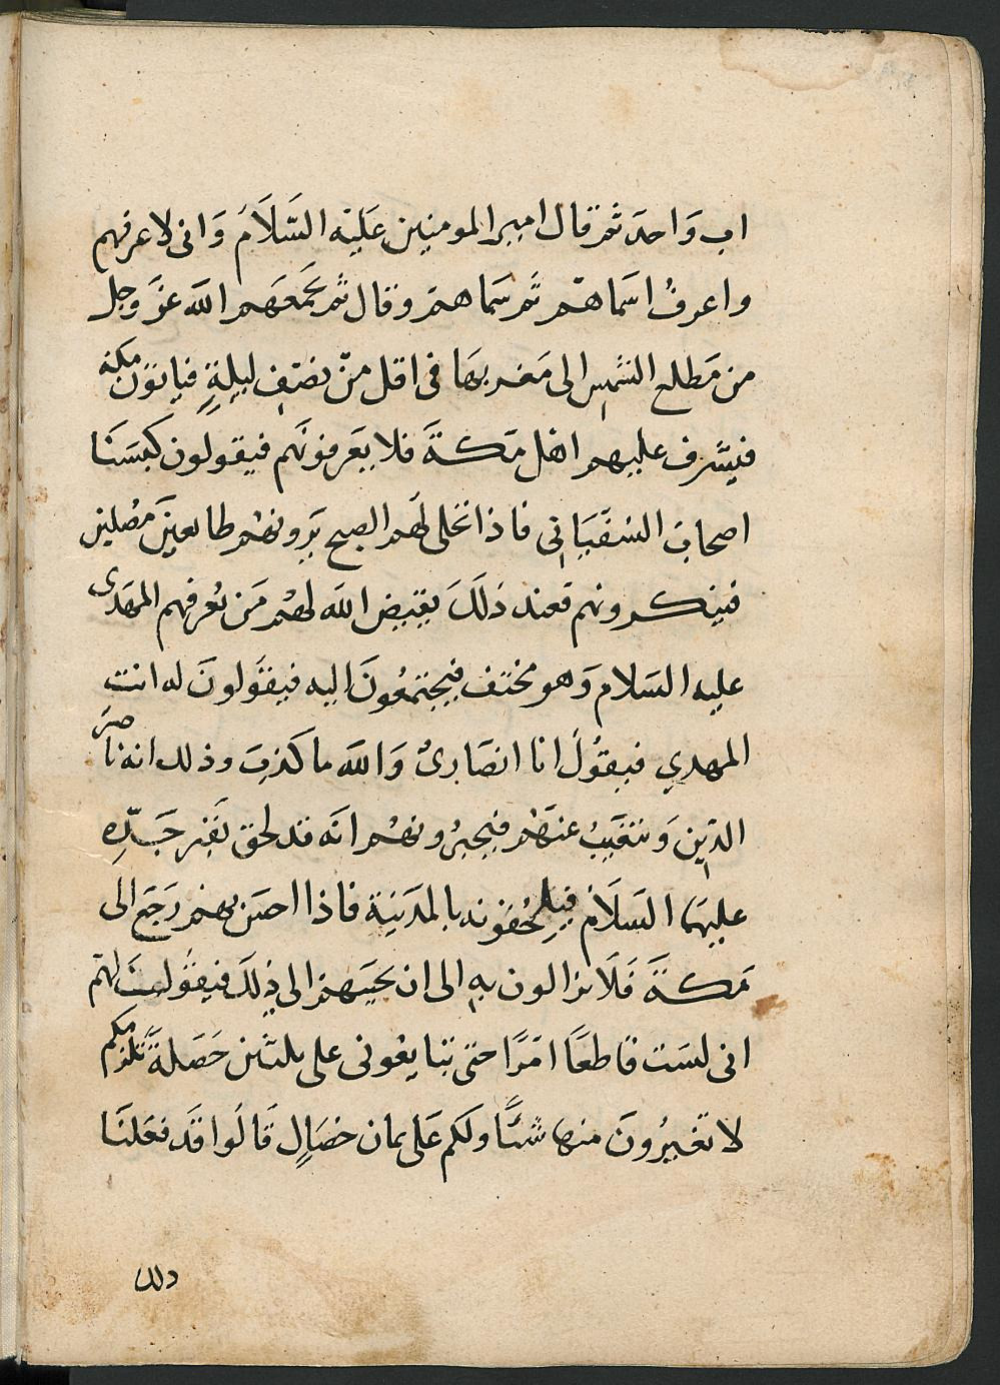 اب وَاحدَ ثمّ قال امير المومنين عَليْه السَّلَامَ وَانى لاعرفهم
واعرفُ اسَماهم ثم سَماهم وقال ثم يَجمَعَهم الله عزَ وجل
من مَطلع الشمس الى مَغربهَا فى اقل منْ نصْف ليلةٍ فياتوُن مكه
فيشَرف عليهم اهْل مَكـة فلا يَعرفونَهم فيقولون كبسَنَا
اصحاب السفيَانِي فاذا تجلى لهَم الصبح يَرونهْم طايعينَ مصُلين
فينكرونهم فعند ذلَكَ يقيض الله لهْم مَن يُعرفهم المهدى
عليه السَلام وَهو مختف فيجتمعُونَ اليه فيقَولونَ له انت
المهدي فيقوُلُ انا انصَارىْ وَالله ما كذبَ وذلك انه ناصرَ
الدين وَيتغَيبُ عنهَمْ فيخبرُونهْم انه قد لحق بقَبر جَدّه
عليهَما السَلَام فيلحقونه بالمدَينة فاذا احسَ بهم رَجعَ الى
مَكـة فَلَا يزالون به الى ان يجيَبهم الى ذلِكَ فيقَول لهَم
انى لسَت قاطعَاً امرًا حتى تبَايعُونى على ثلثين خَصَلةً تلزمكم
لا تغيرُونَ منها شيئًا ولكم عَلى ثمان خصَالٍ قَالَوا قدَ فعَلنَا
ذلك